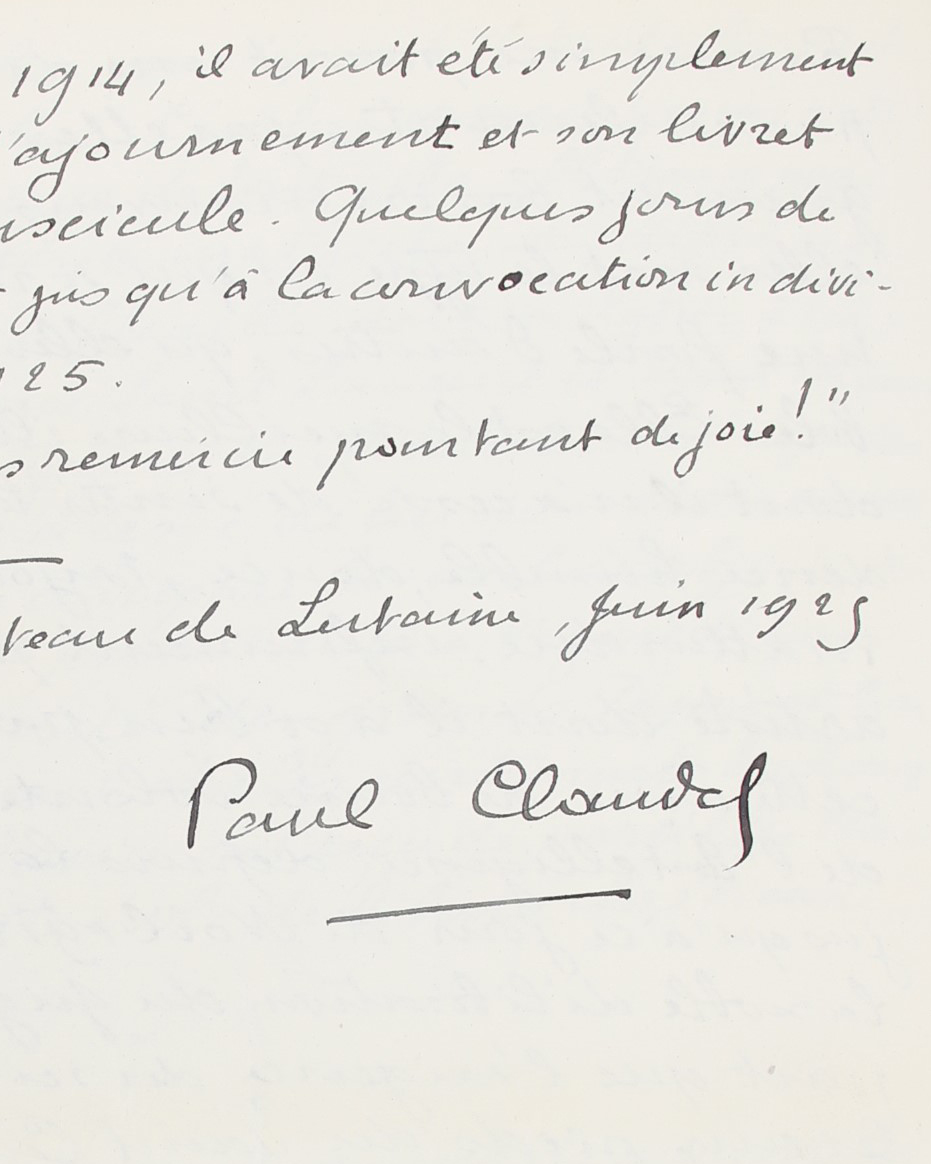 1914, il avait été simplement
'ajournement et son livret
scicule. Quelques jours de
jusqu'à la convocation indivi-
25.
s remercie pourtant de joie!"
teau de Lutaine, Juin 1925
Paul Claudel